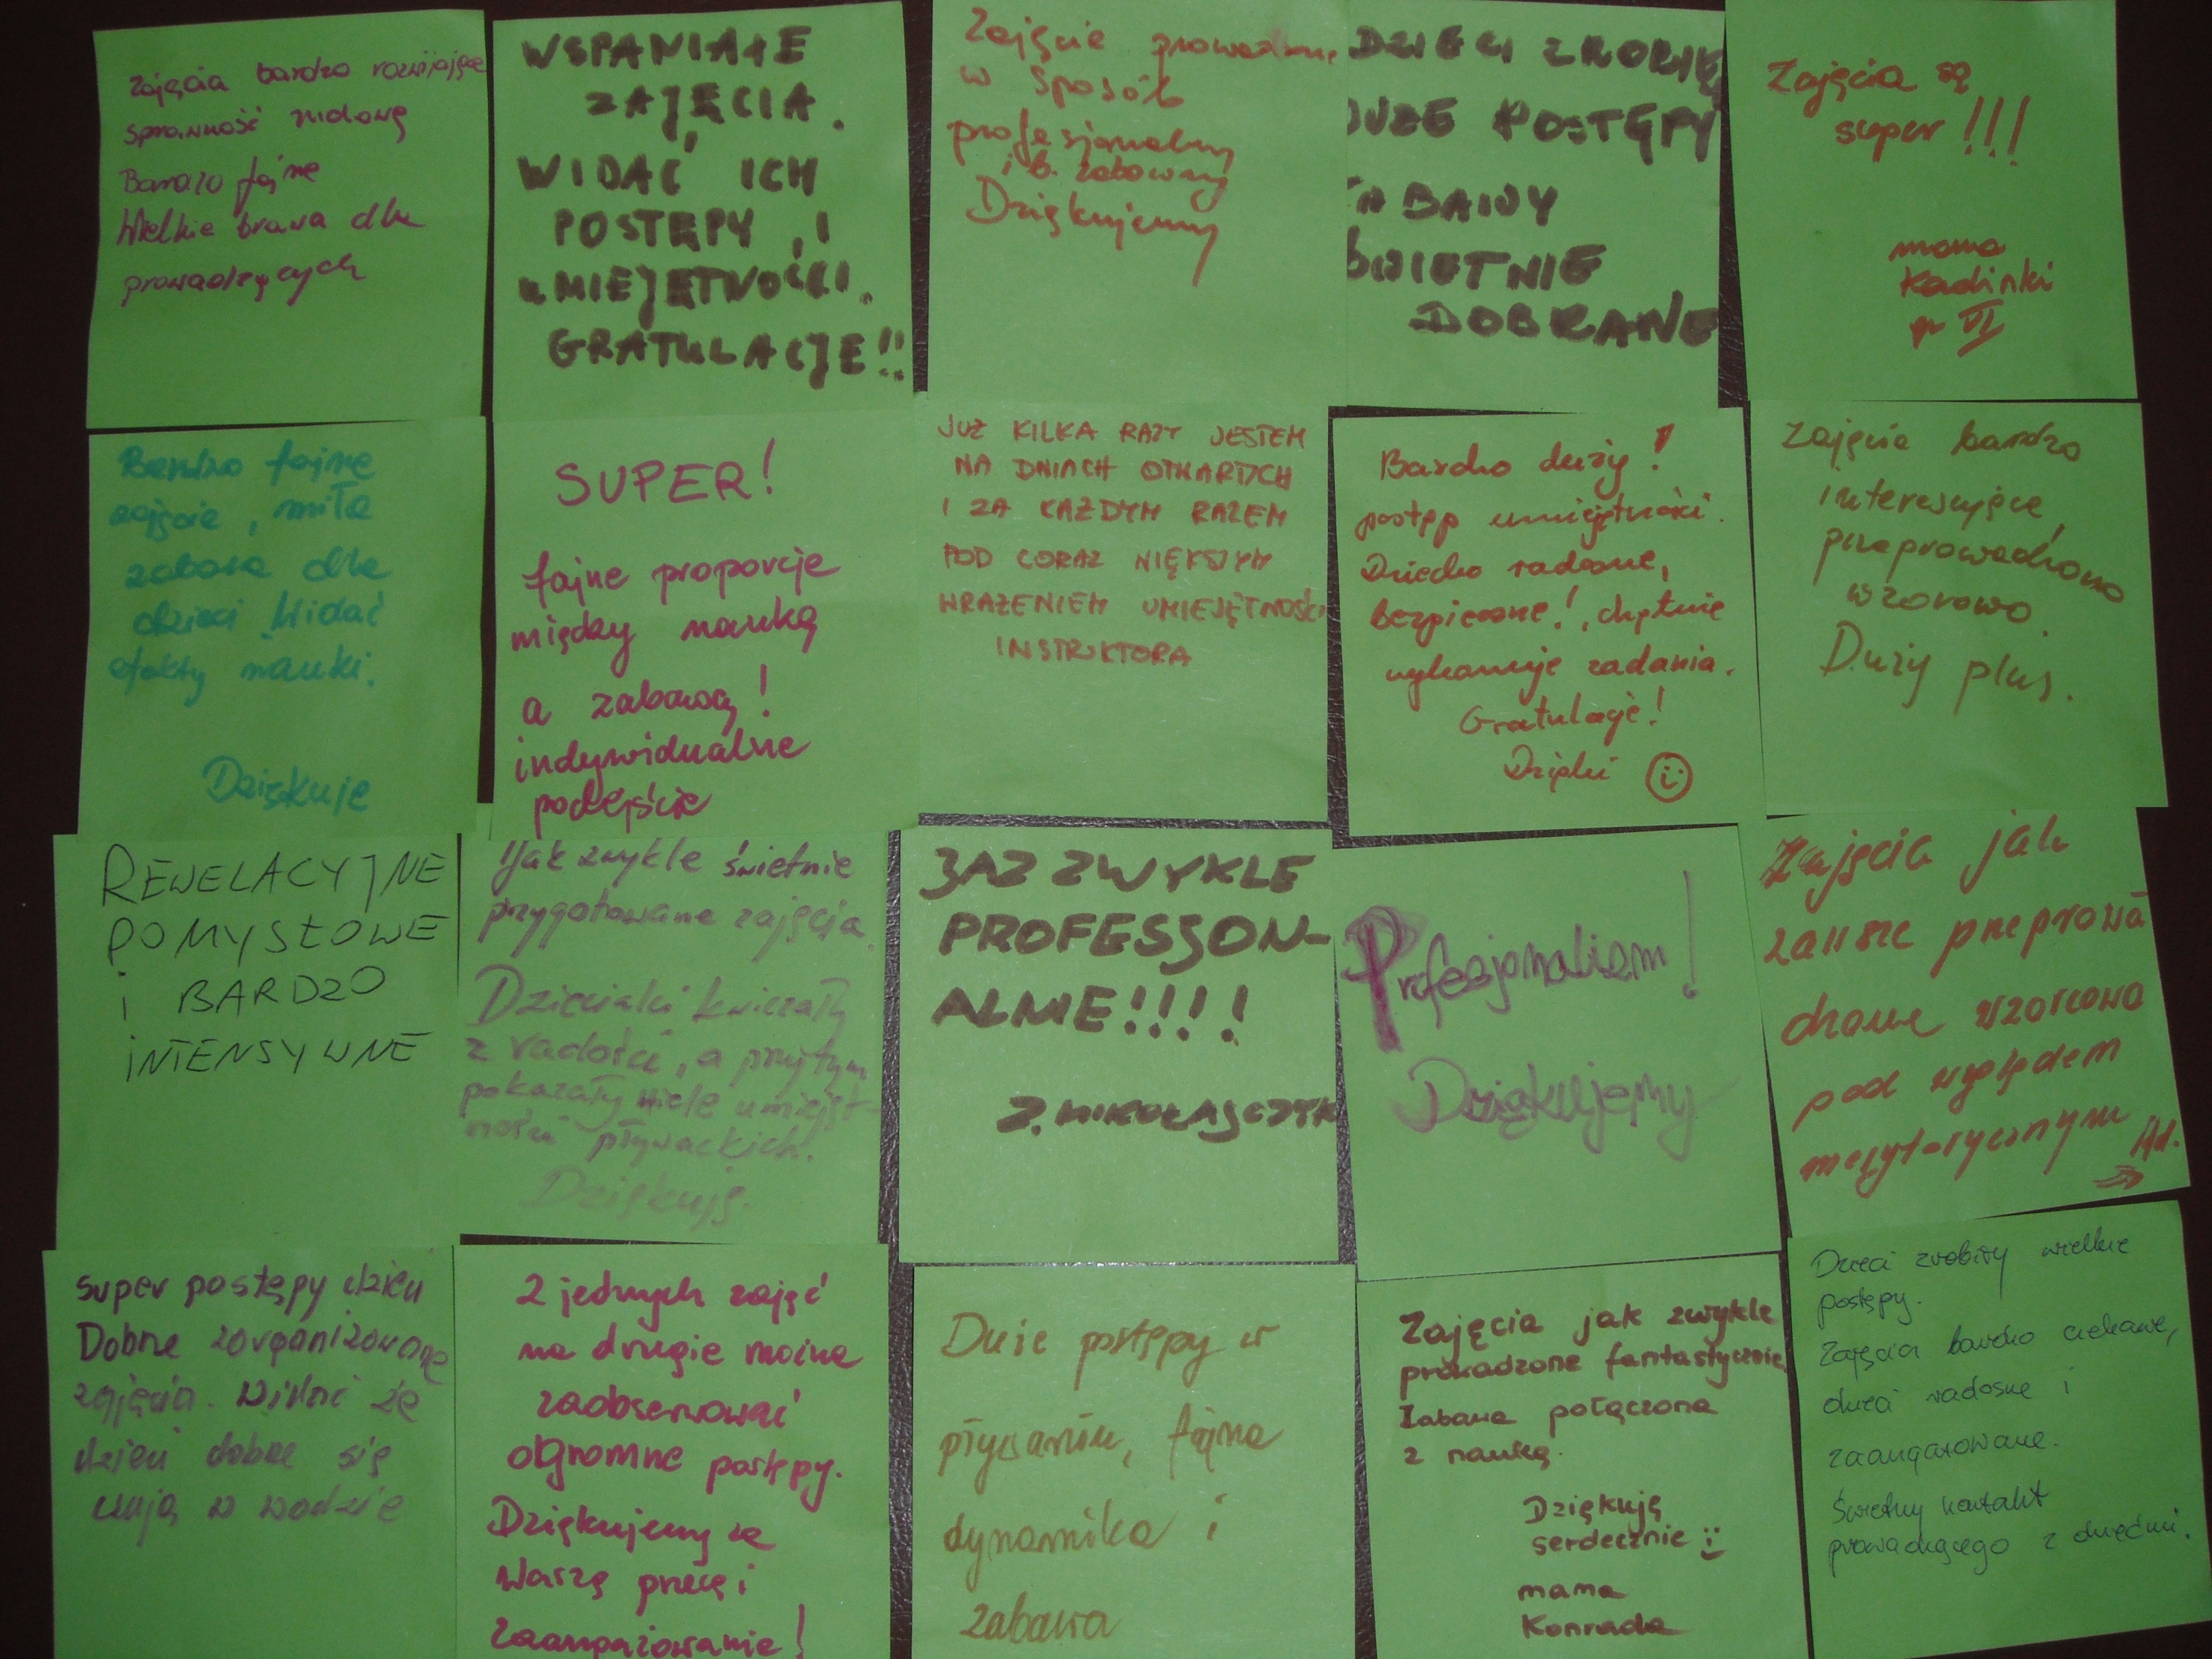 Zajęcia bardzo rozwijające
sprawność ruchową
Bardzo fajne
Wielkie brawa dla
prowadzących
WSPANIAŁE
ZAJĘCIA.
WIDAĆ ICH
POSTĘPY, I
UMIEJĘTNOŚCI.
GRATULACJE!!
Zajęcie prowadzone
w sposób
profesjonalny
i b. zabawny
Dziękujemy
DZIECI ZROBIŁ
DUŻE POSTĘPY
ZABAWY
ŚWIETNIE
DOBRANE
Zajęcia są
super!!!
mama
Kadinki
gr VI
Bardzo fajne
zajęcie, miła
zabawa dla
dzieci Widać
efekty nauki.
Dziękuje
SUPER!
fajne proporcje
między nauką
a zabawą!
indywidualne
podejście
JUŻ KILKA RAZY JESTEM
NA DNIACH OTWARTYCH
I ZA KAŻDYM RAZEM
POD CORAZ WIĘKSZYM
WRAŻENIEM UMIEJĘTNOŚCI
INSTRUKTORA
Bardzo duży!
postęp umiejętności.
Dziecko radosne,
bezpieczne!, chętnie
wykonuje zadania.
Gratulacje!
Dzięki
Zajęcie bardzo
interesujące,
przeprowadzono
wzorowo.
Duży plus.
REWELACYJNE
POMYSŁOWE
i BARDZO
iNTENSYWNE
Jak zwykle świetnie
przygotowane zajęcia.
Dzieciaki kwiczały
z radości, a przy tym
pokazały wiele umiejęt-
ności pływackich.
Dziękuję.
JAZ ZWYKLE
PROFESJON-
ALNIE!!!!
Z. MIKOŁAJCZYK
Profesjonalizm!
Dziękujemy
Zajęcia jak
zawsze przeprowa
dzone wzorcowo
pod względem
merytorycznym
Ad.
super postępy dzieci
Dobrze zorganizowane
zajęcia. Widać że
dzieci dobrze się
czują w wodzie
Z jednych zajęć
na drugie można
zaobserwować
ogromne postępy.
Dziękujemy za
Waszą pracę i
zaangażowanie!
Duże postępy w
pływaniu, fajna
dynamika i
zabawa
Zajęcia jak zwykle
prowadzone fantastycznie
Zabawa połączona
z nauką.
Dziękuję
serdecznie :)
mama
Konrada
Dzieci zrobiły wielkie
postępy.
Zajęcia bardzo ciekawe,
dzieci radosne i
zaangażowane.
Świetny kontakt
prowadzącego z dziećmi.